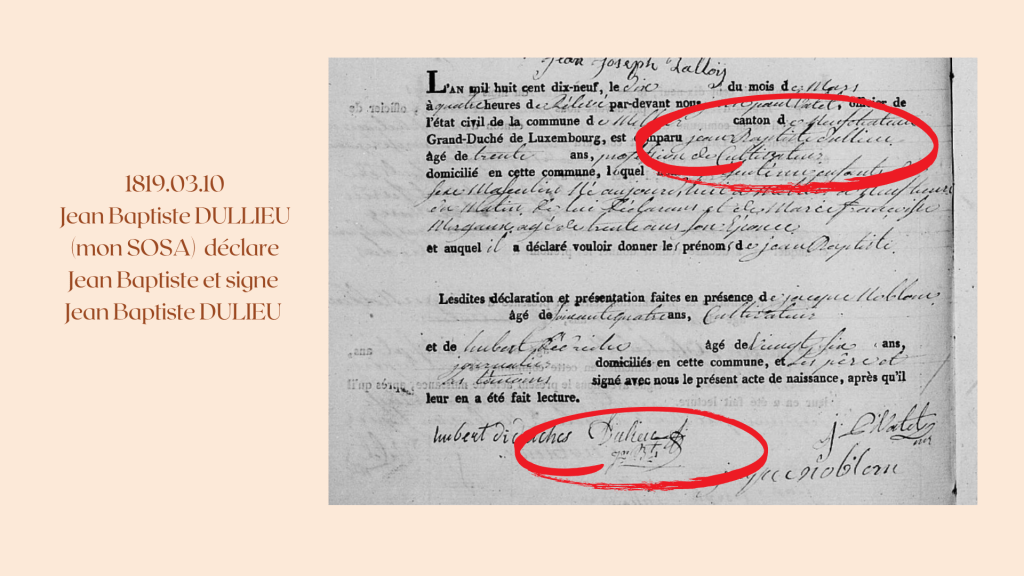 1819.03.10
Jean Baptiste DULLIEU
(mon SOSA) déclare
Jean Baptiste et signe
Jean Baptiste DULIEU
jean Joseph Lallois
L'AN mil huit cent dix-neuf, le dix du mois de Mars
à quatre heures de Relevé par-devant nous officier de
l'état civil de la commune de canton de neufchateau
Grand-Duché de Luxembourg, est comparu jean Baptiste dullieu
âgé de trente ans, profession de Cultivateur
domicilié en cette commune, lequel
sexe Masculin Né aujourd'hui à
du Matin, de lui Déclarant et de Marie françoise
agé de trente ans son Epouse
et auquel il a déclaré vouloir donner les prénoms de jean Baptiste
Lesdites déclaration et présentation faites en présence de jacque Noblom
âgé de ans, Cultivateur
et de hubert âgé de vingt six ans,
journalier domiciliés en cette commune, et les père et
témoins signé avec nous le présent acte de naissance, après qu'il
leur en a été fait lecture.
hubert Dulieu
jean Bte
jacque noblom